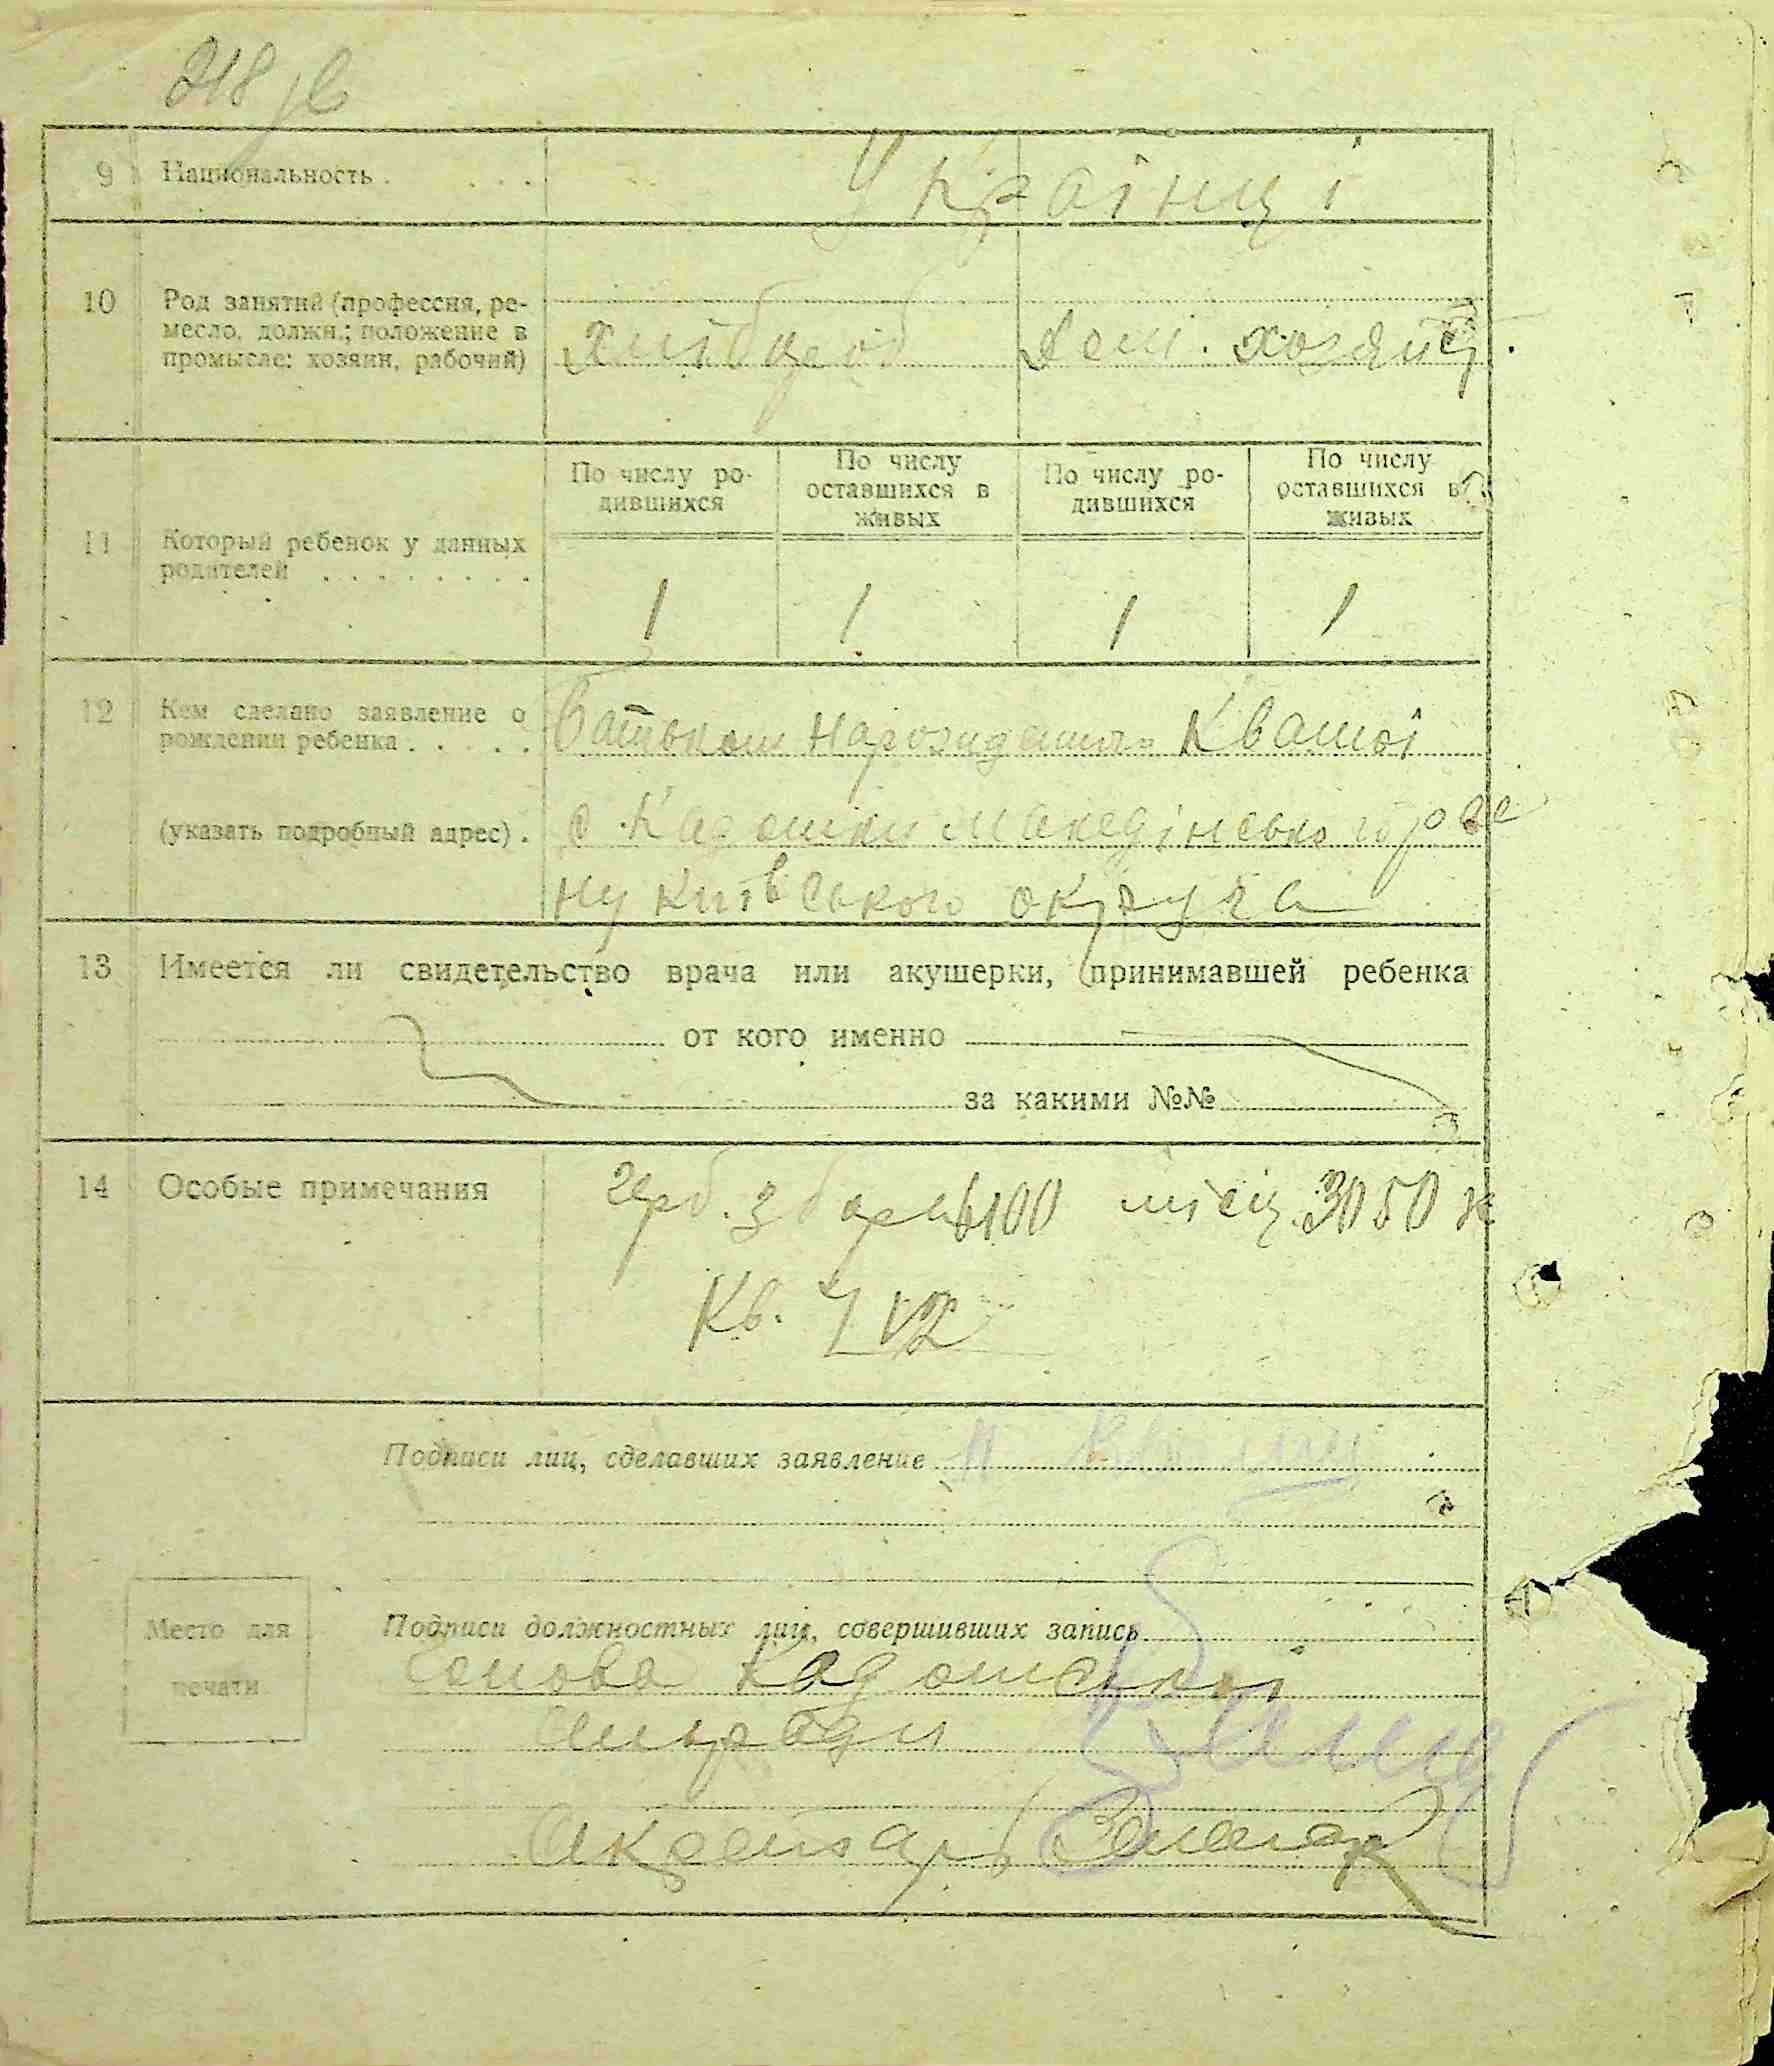 218 зв
9 Национальность . . . . Українці
10 Род занятий (профессия, ре-
месло, должн.; положение в
промысле: хозяин, рабочий) Хлібороб Дом. хозяйст.
По числу ро-
дившихся
По числу
оставшихся в
живых
По числу ро-
дившихся
По числу
оставшихся в
живых
11 Который ребенок у данных
родителей . . . . . . . .
1 1 1 1
12 Кем сделано заявление о
рождении ребенка . . . . . Батьком
(указать подробный адрес) . с
Київського округа
13 Имеется ли свидетельство врача или акушерки, принимавшей ребенка
от кого именно
за какими №№
14 Особые примечания герб. збору 100 місц. 30 50 к
Кв. 4
Подписи лиц, сделавших заявление
Место для
печати
Подписи должностных лиц, совершивших запись
Голова
сільради
Секретарь